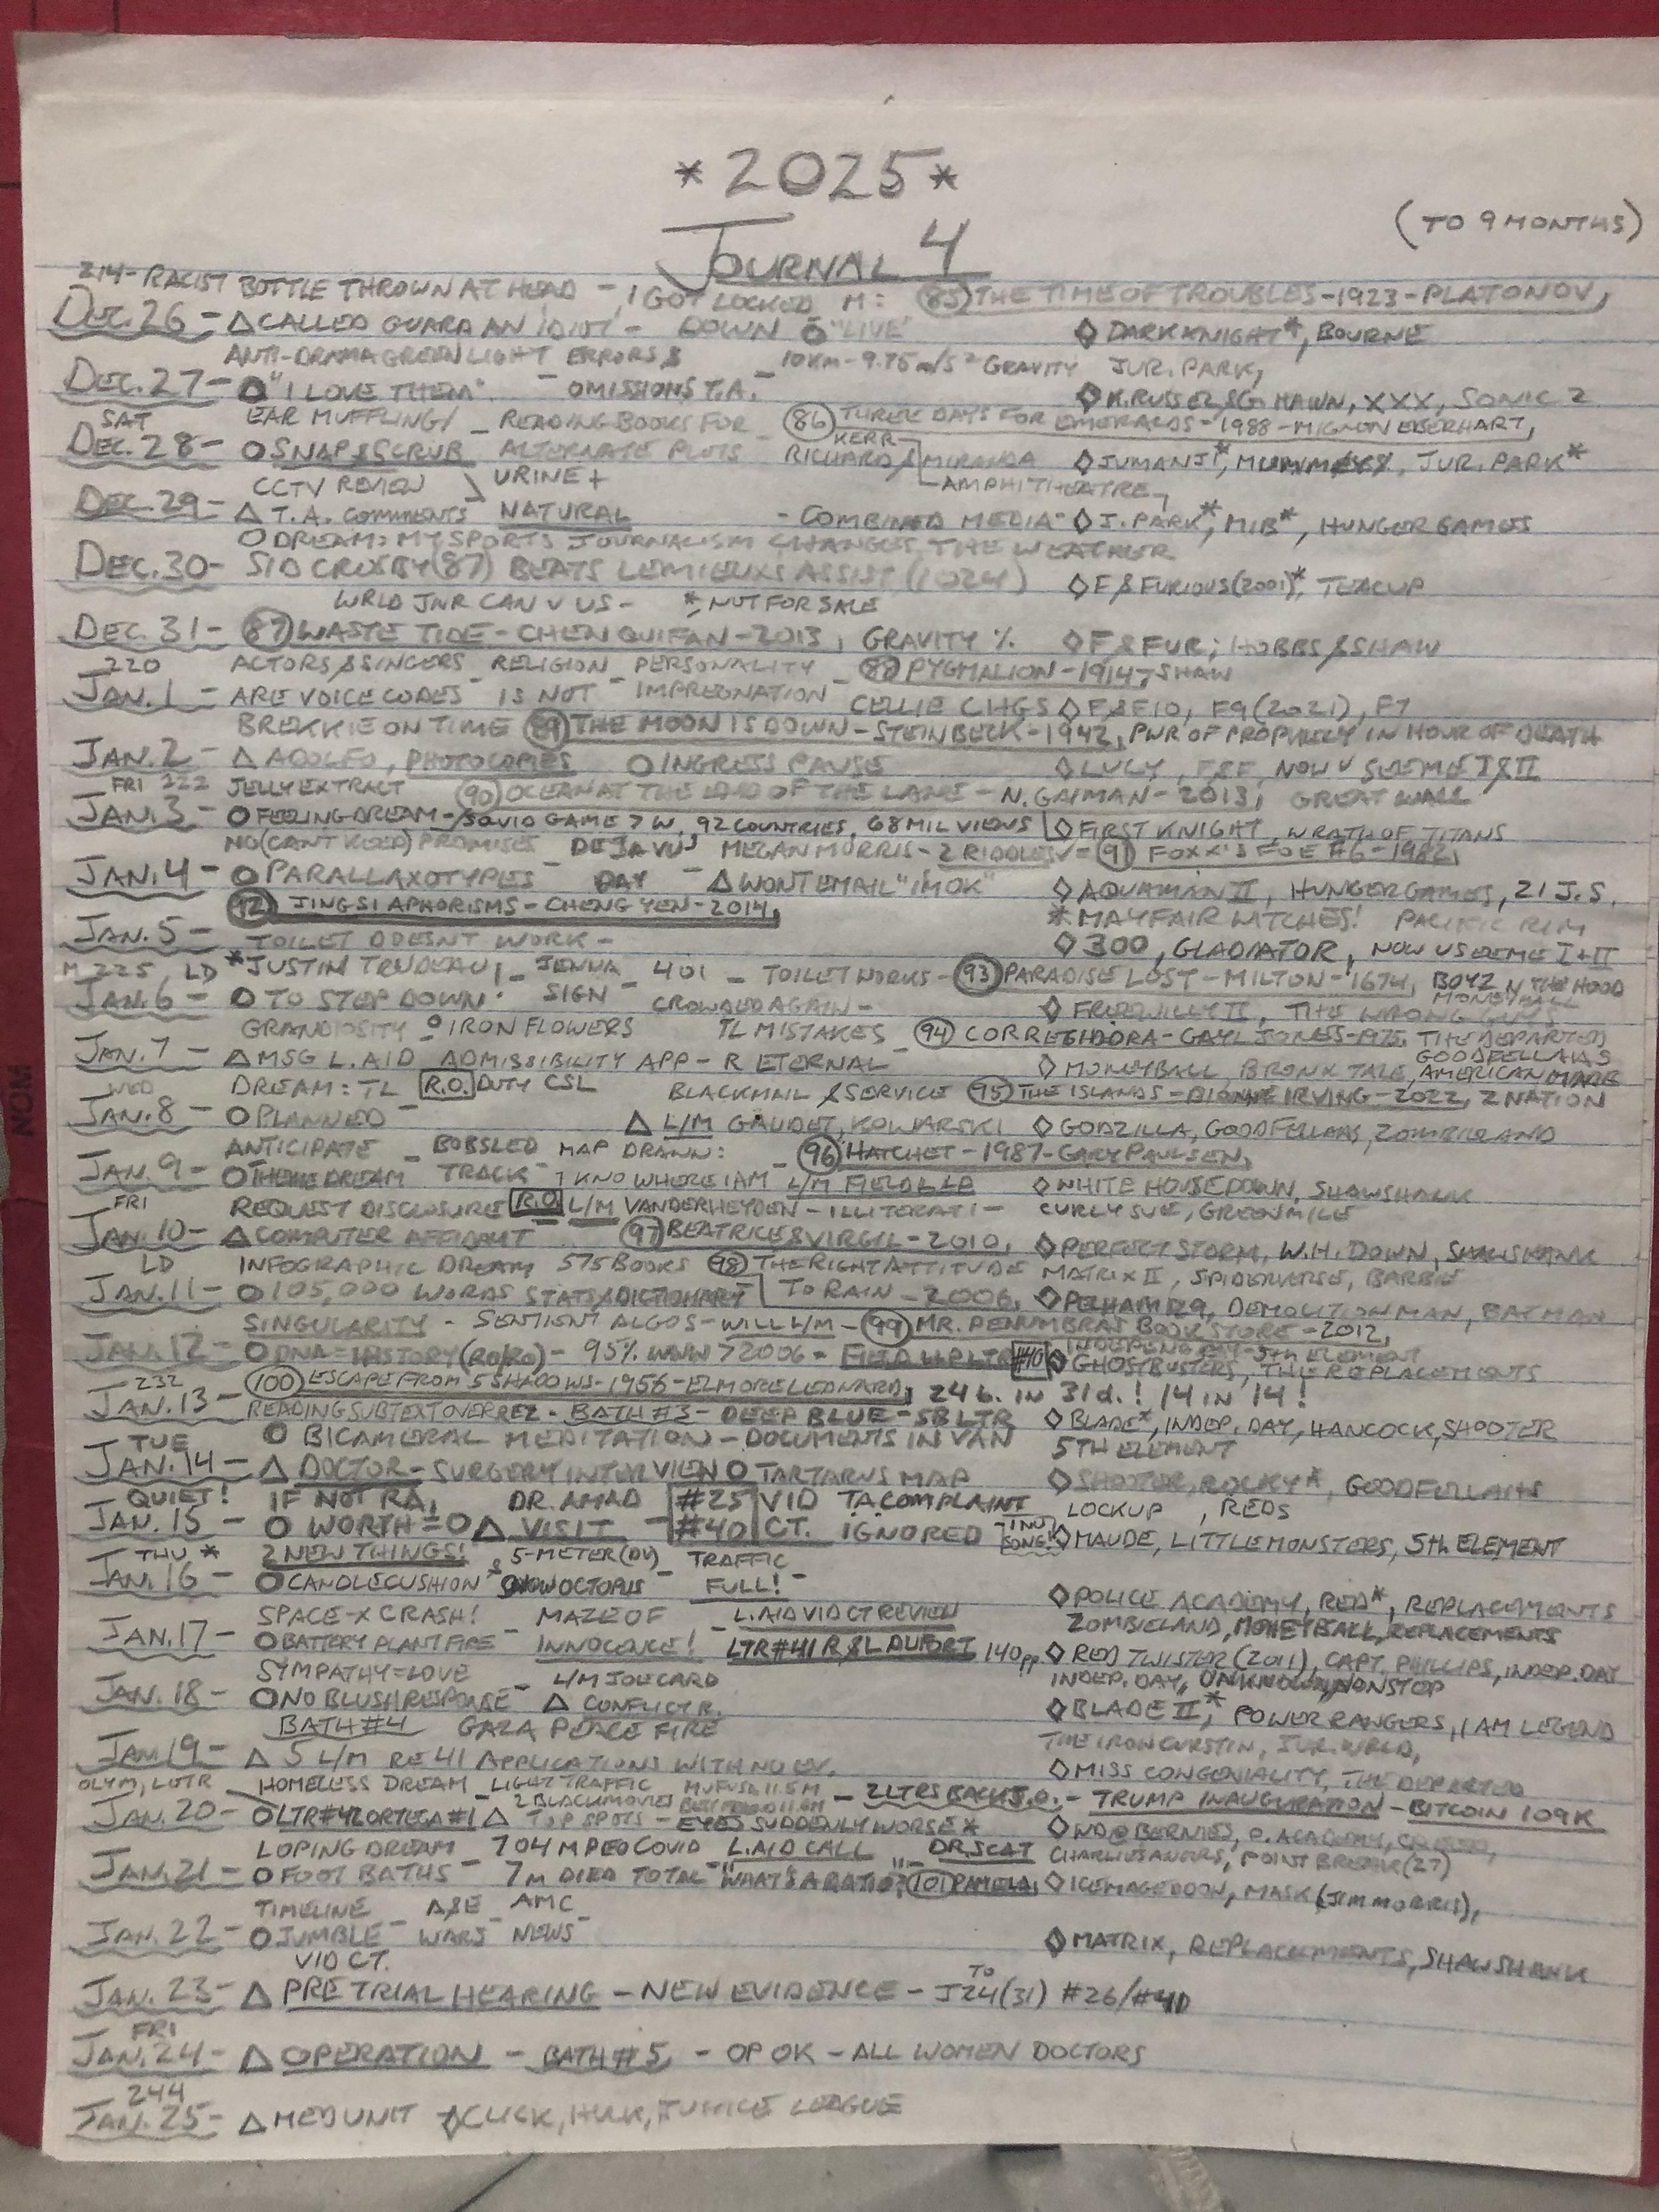 *2025*
(TO 9 MONTHS)
JOURNAL 4
214- RACIST BOTTLE THROWN AT HEAD - I GOT LOCKED M: (85) THE TIME OF TROUBLES-1923-PLATONOV,
DEC.26 - △ CALLED GUARD AN "IDIOT" - DOWN O "LIVE" ◇ DARK KNIGHT*, BOURNE
ANTI-DRAMA GREEN LIGHT ERRORS & 10KM-9.75m/s² GRAVITY JUR. PARK,
DEC.27 - O "I LOVE THEM" - OMISSIONS T.A. - ◇ K.RUSSEL&G. HAWN, XXX, SONIC 2
SAT EAR MUFFLING/ - READING BOOKS FOR (86) THREE DAYS FOR EMERALDS-1988-MIGNON EBERHART,
DEC.28 - O SNAP&SCRUB ALTERNATE PLOTS - RICHARD & KERR MIRANDA ◇ JUMANJI*, JUR. PARK*
CCTV REVIEW \ URINE + AMPHITHEATRE
DEC.29 - △ T.A. COMMENTS NATURAL - COMBINED MEDIA - ◇ J. PARK*, MIB*, HUNGER GAMES
O DREAM: MY SPORTS JOURNALISM CHANGES THE WEATHER
DEC.30 - SID CROSBY (87) BEATS LEMIEUXS ASSIST (1024) ◇ F&FURIOUS(2001)*, TEACUP
WRLD JNR CAN V US - *, NOT FOR SALE
DEC.31 - (87) WASTE TIDE - CHEN QUIFAN-2013, GRAVITY % ◇ F&FUR; HOBBS&SHAW
220 ACTORS&SINGERS - RELIGION - PERSONALITY - (88) PYGMALION-1914, SHAW
JAN.1 - ARE VOICE CODES - IS NOT - IMPREGNATION CELLIE CHGS ◇ F&F10, F9(2021), F7
BREKKIE ON TIME (89) THE MOON IS DOWN-STEINBECK-1942, PWR OF PROPHECY IN HOUR OF DEATH
JAN.2 - △ ADOLFO, PHOTOCOPIES O INGRESS PAUSE ◇ LUCY, F&F, NOW U SEE ME I&II
FRI 222 JELLY EXTRACT (90) OCEAN AT THE END OF THE LANE - N. GAIMAN-2013, GREAT WALL
JAN.3 - O FEELING DREAM-/SQUID GAME 7W, 92 COUNTRIES, 68 MIL VIEWS | ◇ FIRST KNIGHT, WRATH OF TITANS
NO (CAN'T KEEP) PROMISES DEJAVU MEGAN MORRIS-2 RIDDLES ✓= (91) FOXX'S FOE #6-1982,
JAN.4 - O PARALLAXOTYPES - DAY - △ WONT EMAIL "IM OK" ◇ AQUAMAN II, HUNGER GAMES, 21 J.S.
(92) JING SI APHORISMS-CHENG YEN-2014, *MAYFAIR WITCHES! PACIFIC RIM
JAN.5 - TOILET DOESNT WORK - ◇ 300, GLADIATOR, NOW U SEE ME I+II
M 225, LD *JUSTIN TRUDEAU, - JENNA - 401 - TOILET WORKS - (93) PARADISE LOST-MILTON-1674, BOYZ N THE HOOD
JAN.6 - O TO STEP DOWN. SIGN CROWDED AGAIN - ◇ FREE WILLY II, THE WRONG GUYS MONEYBALL
GRANDIOSITY O IRON FLOWERS TL MISTAKES - (94) CORREGIDORA-GAYL JONES-1975, THE DEPARTED
JAN.7 - △ MSG L.AID ADMISSIBILITY APP - R ETERNAL GOODFELLAHS
◇ MONEYBALL, BRONX TALE, AMERICAN MADE
WED DREAM: TL R.O. DUTY CSL BLACKMAIL & SERVICE (95) THE ISLANDS-DIONNE IRVING-2022, Z NATION
JAN.8 - O PLANNED - △ L/M GAUDET, KOWARSKI ◇ GODZILLA, GOODFELLAHS, ZOMBIELAND
ANTICIPATE - BOBSLED MAP DRAWN: - (96) HATCHET-1987-GARY PAULSEN,
JAN.9 - O THEME DREAM TRACK - I KNO WHERE I AM - L/M FIELD LLP ◇ WHITE HOUSE DOWN, SHAWSHANK
FRI REQUEST DISCLOSURE R.O. L/M VANDERHEYDEN-ILLITERATI - CURLY SUE, GREEN MILE
JAN.10 - △ COMPUTER AFFIDAVIT (97) BEATRICE&VIRGIL-2010, ◇ PERFECT STORM, W.H. DOWN, SHAWSHANK
LD INFOGRAPHIC DREAM 575 BOOKS (98) THE RIGHT ATTITUDE MATRIX II, SPIDERVERSE, BARBIE
JAN.11 - O 105,000 WORDS STATS/DICTIONARY TO RAIN-2006, ◇ PELHAM 129, DEMOLITION MAN, BATMAN
SINGULARITY - SENTIENT ALGOS-WILL L/M - (99) MR. PENUMBRAS BOOK STORE-2012,
JAN.12 - O DNA=HISTORY (RO/RO) - 95% WWW >2006 - FIELD LLP LTR #40 INDEPENDENCE DAY-5th ELEMENT
◇ GHOSTBUSTERS, THE REPLACEMENTS
232 (100) ESCAPE FROM 5 SHADOWS-1956-ELMORE LEONARD, 24 b. IN 31d.! 14 IN '14!
JAN.13 - READING SUBTEXT OVER REZ. - BATH #3 - DEEP BLUE-SB LTR ◇ BLADE*, INDEP. DAY, HANCOCK, SHOOTER
TUE O BICAMERAL MEDITATION-DOCUMENTS IN VAN 5TH ELEMENT
JAN.14 - △ DOCTOR-SURGERY INTERVIEW O TARTARUS MAP ◇ SHOOTER, ROCKY*, GOODFELLAHS
QUIET! IF NOT RA, DR. AMAD #25 VID TA COMPLAINT LOCKUP, REDS
JAN.15 - O WORTH=0 △ VISIT - #40 CT. IGNORED - 1 NU SONG! ◇ MAUDE, LITTLE MONSTERS, 5th ELEMENT
THU * 2 NEW THINGS! 5-METER (DV) - TRAFFIC
JAN.16 - O CANDLE CUSHION & SNOW OCTOPUS - FULL! - ◇ POLICE ACADEMY, RED*, REPLACEMENTS
SPACE-X CRASH! - MAZE OF - L.AID VID CT REVIEW ZOMBIELAND, MONEYBALL, REPLACEMENTS
JAN.17 - O BATTERY PLANT FIRE INNOCENCE! LTR #41 R&L DUPORT 140pp. ◇ RED TWISTER (2011), CAPT. PHILLIPS, INDEP. DAY
SYMPATHY=LOVE - L/M JOE CARD INDEP. DAY, UNKNOWN, NONSTOP
JAN.18 - O NO BLUSH RESPONSE △ CONFLICT R. ◇ BLADE II*, POWER RANGERS, I AM LEGEND
BATH #4 GAZA PEACE FIRE THE IRON CURTAIN, JUR. WRLD,
JAN.19 - △ 5 L/M RE 41 APPLICATIONS WITH NO EV. ◇ MISS CONGENIALITY, THE DEPARTED
OLYM, LOTR HOMELESS DREAM - LIGHT TRAFFIC MUFUSA 11.5M - 2 LTRS BACK J.O. - TRUMP INAUGURATION - BITCOIN 109K
2 BLACK MOVIES
JAN.20 - O LTR #42 ORTEGA #1 △ TOP SPOTS - EYES SUDDENLY WORSE* ◇ WD@BERNIES, P. ACADEMY, CREED,
LOPING DREAM - 704 M PEO COVID L.AID CALL DR. SCAT CHARLIES ANGELS, POINT BREAK (27)
JAN.21 - O FOOT BATHS - 7M DIED TOTAL - "WHAT'S A RATIO?" (101) PAMELA, ◇ ICEMAGEDDON, MASK (JIM MORRIS),
TIMELINE A&E AMC
JAN.22 - O JUMBLE - WARS - NEWS - ◇ MATRIX, REPLACEMENTS, SHAWSHANK
VID CT.
JAN.23 - △ PRE TRIAL HEARING - NEW EVIDENCE - TO J24(31) #26/#41
FRI
JAN.24 - △ OPERATION - BATH #5, - OP OK - ALL WOMEN DOCTORS
244
JAN.25 - △ MED UNIT ◇ CLICK, HULK, JUSTICE LEAGUE
MOM